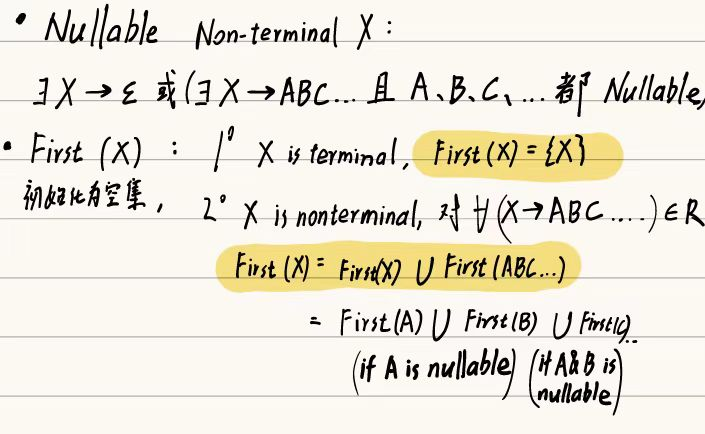 • Nullable Non-terminal X :
∃X → ε 或 (∃X → ABC... 且 A、B、C、... 都 Nullable)
• First (X) : 1° X is terminal, First(X) = {X}
初始化为空集, 2° X is nonterminal, 对 ∀(X→ABC....) ∈ R
First(X) = First(X) ∪ First(ABC...)
= First(A) ∪ First(B) ∪ First(C)...
(if A is nullable) (if A&B is nullable)